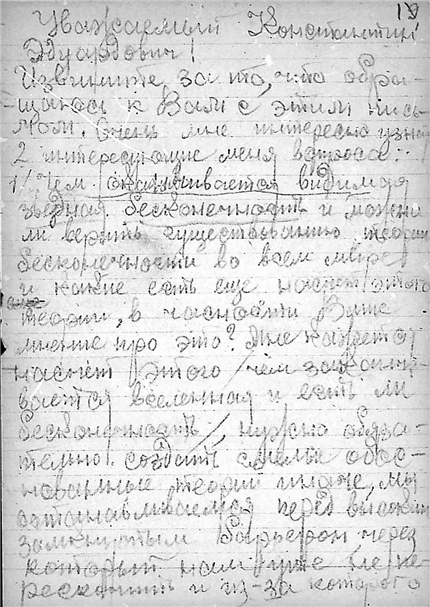 19
Уважаемый Константин
Эдуардович!
Извините за то, что обра-
щаюсь к Вам с этим пись-
мом. Очень мне интересно узнать
2 интересующие меня вопроса:
1/ Чем оканчивается видимая
звездная бесконечность и можно
ли верить существованию теории
бесконечности во всем мире
и какие есть еще насчет этого
теории, в частности Ваше
мнение про это? Мне кажется
насчет этого /чем заканчи-
вается вселенная и есть ли
бесконечность/ нужно обяза-
тельно создать смелые обос-
нованные теории иначе мы
останавливаемся перед высоким
замкнутым барьером через
который нам уже не пе-
рескочить и из-за которого